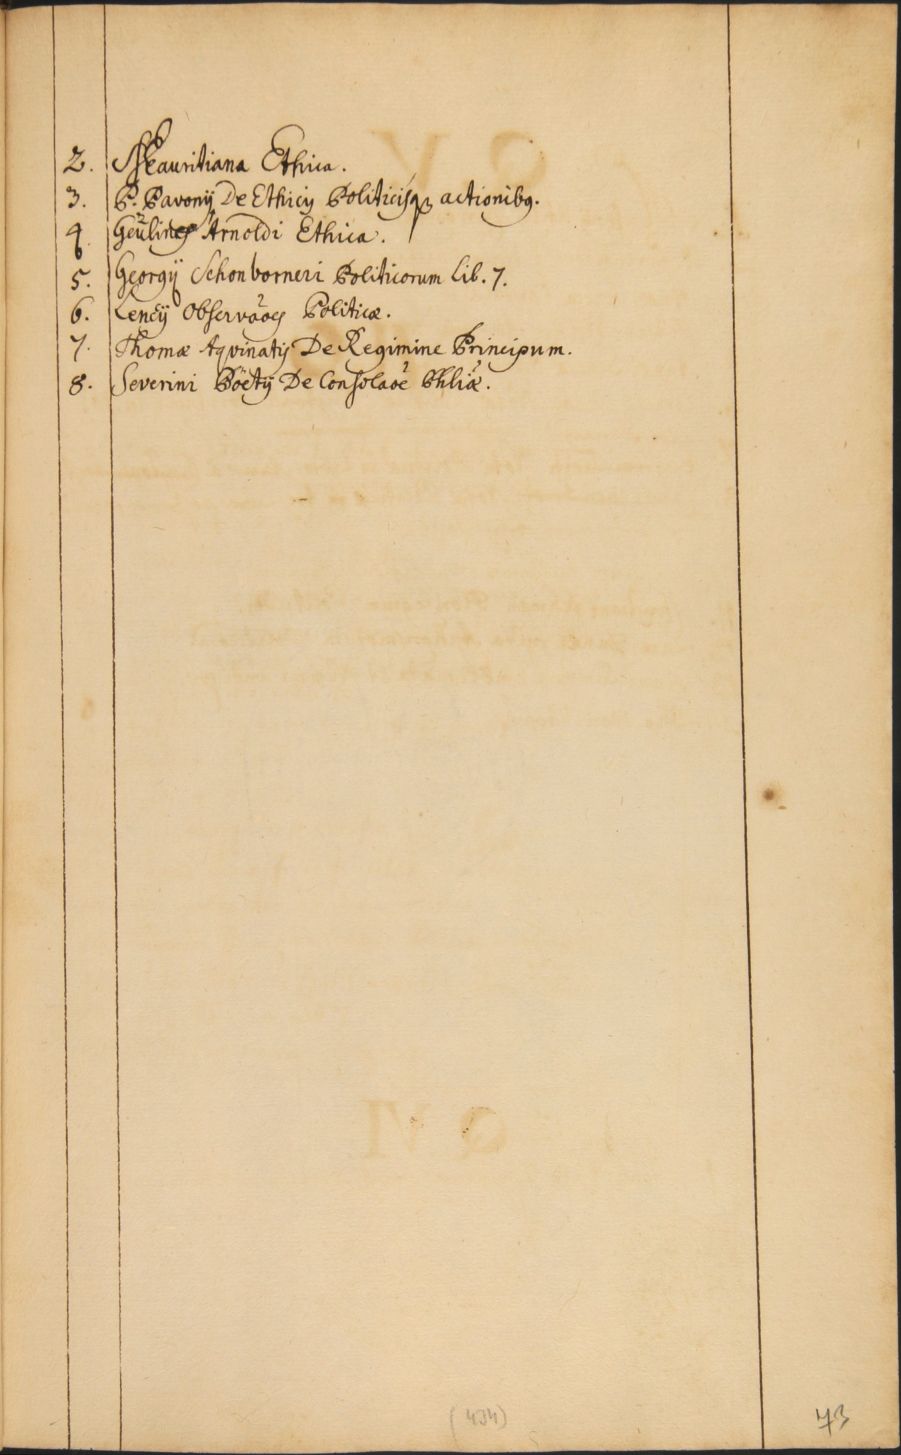 2. Mauritiana Ethica.
3. P. Pavonij De Ethicis Politicisq; actionibq.
4 Geülincs Arnoldi Ethica.
5. Georgij Schonborneri Politicorum Lib. 7.
6. Observãoes Politicæ.
7. Thomæ Aqvinatis De Regimine Principum.
8. Severini Böetij De Consolaõe Phliæ.
Q VI
(434)
73